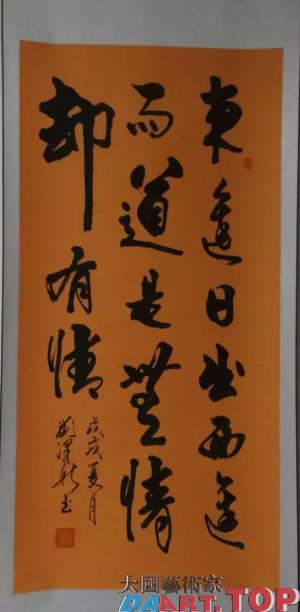 東邊日出西邊
雨道是無情
却有情
戊戌夏月
書
大國藝術家
DAART.TOP